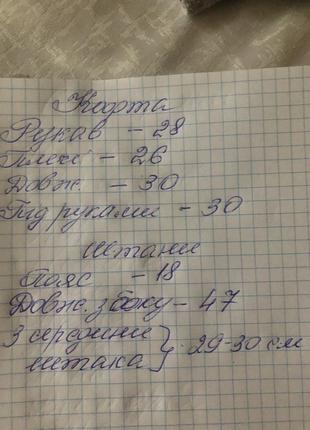 Кофта
Рукав - 28
Плечі - 26
Довж. - 30
Під руками - 30
Штани
Пояс - 18
Довж. збоку - 47
З середини
штана } : 29-30 см